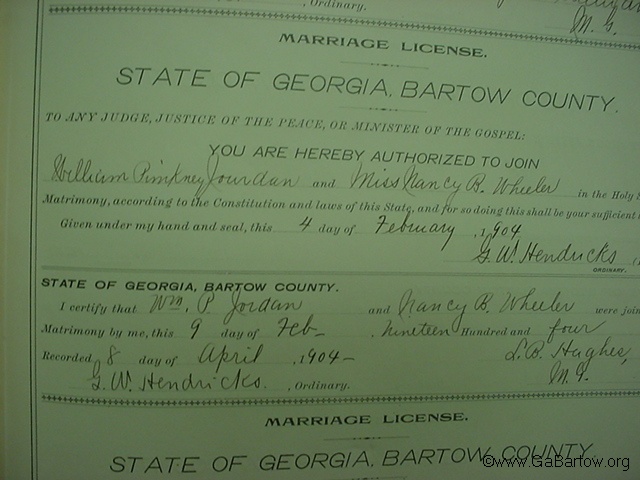 , Ordinary.
M. G.
MARRIAGE LICENSE.
STATE OF GEORGIA, BARTOW COUNTY.
TO ANY JUDGE, JUSTICE OF THE PEACE, OR MINISTER OF THE GOSPEL:
YOU ARE HEREBY AUTHORIZED TO JOIN
William Pinkney Jourdan and Miss Nancy B. Wheeler in the Holy S
Matrimony, according to the Constitution and laws of this State, and for so doing this shall be your sufficient
Given under my hand and seal, this 4 day of February , 1904
G. W. Hendricks
ORDINARY.
STATE OF GEORGIA, BARTOW COUNTY.
I certify that Wm. P. Jordan and Nancy B. Wheeler were join
Matrimony by me, this 9 day of Feb , nineteen Hundred and four
Recorded 8 day of April , 1904 – L. B. Hughes,
G. W. Hendricks. , Ordinary. M. G.
MARRIAGE LICENSE.
STATE OF GEORGIA, BARTOW COUNTY.
©www.GaBartow.org